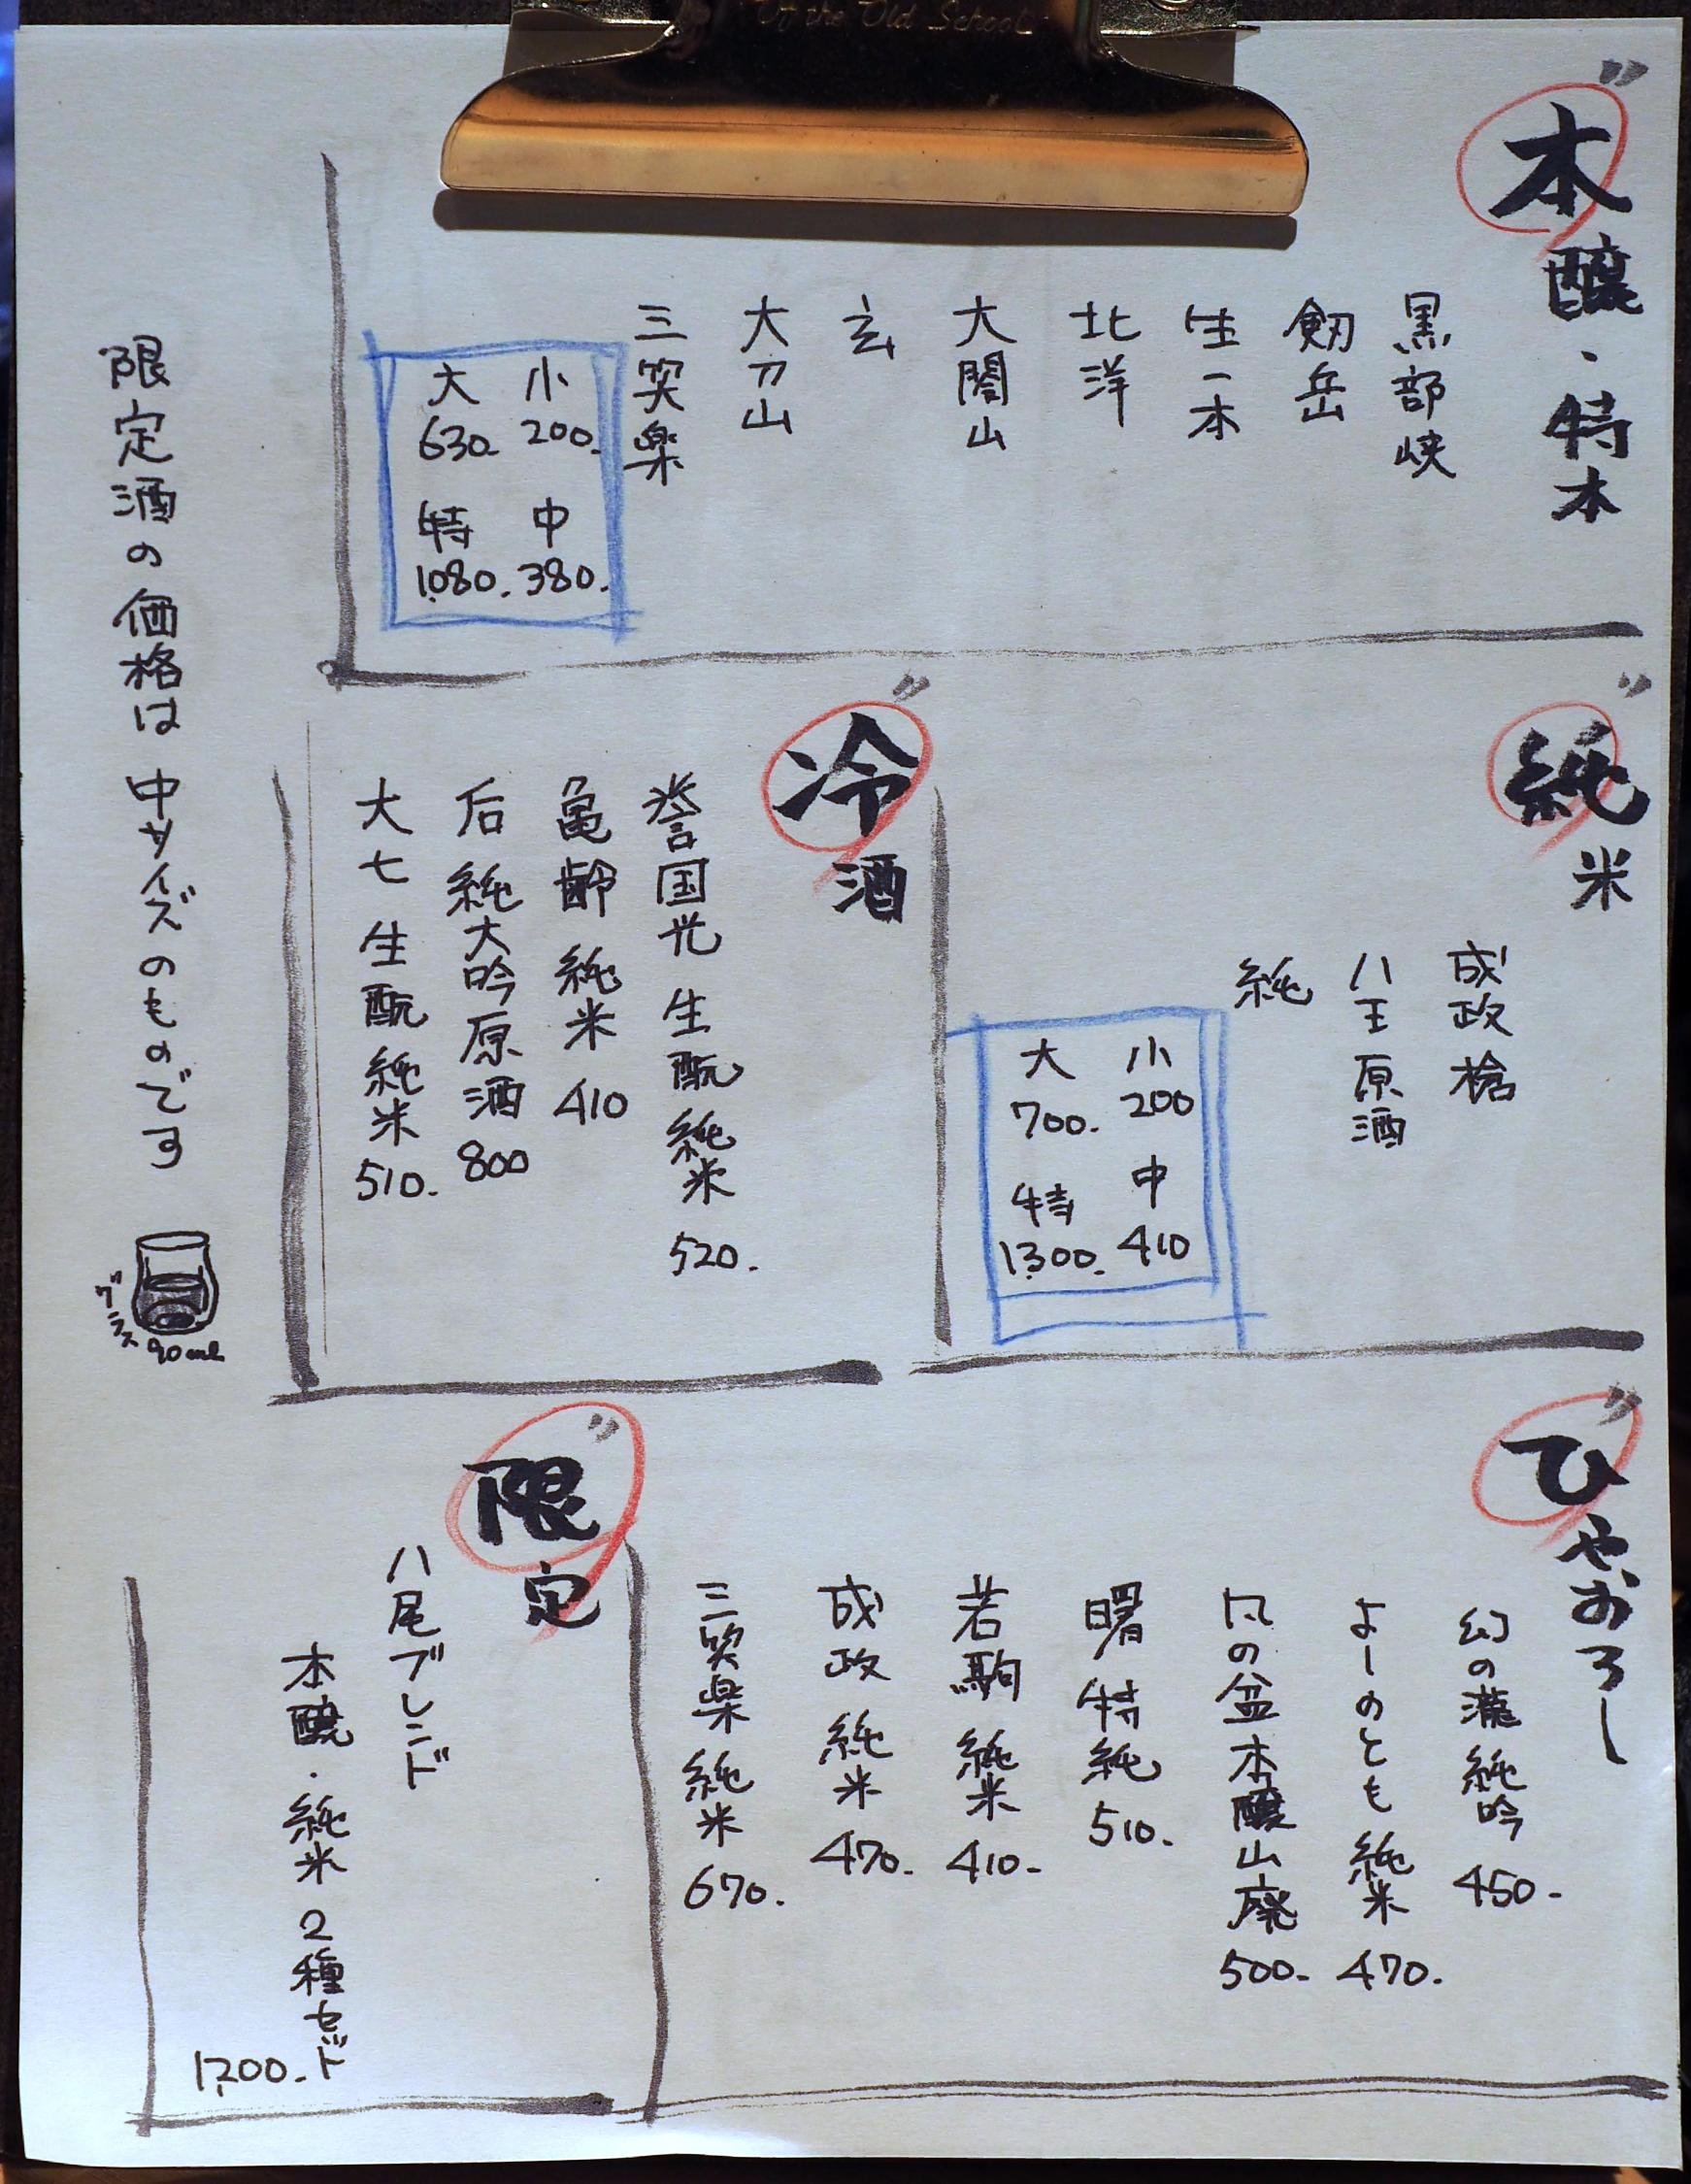 Of the Old School
本醸・特本
黒部峡
剱岳
生一本
北洋
大閤山
玄
大刀山
三笑楽
小 200. 中 380.
大 630. 特 1,080.
純米
成政 槍
八王 原酒
純
小 200 中 410
大 700. 特 1,300.
冷酒
誉国光 生酛 純米 520.
亀齢 純米 410
后 純大吟原酒 800
大七 生酛 純米 510.
ひやおろし
幻の瀧 純吟 450.
よーのとも 純米 470.
風の盆 本醸山廃 500.
曙 特純 510.
若駒 純米 410.
成政 純米 470.
三笑楽 純米 670.
限定
八尾ブレンド
本醸・純米 2種セット
1,200.
限定酒の価格は 中サイズのものです
グラス 90ml